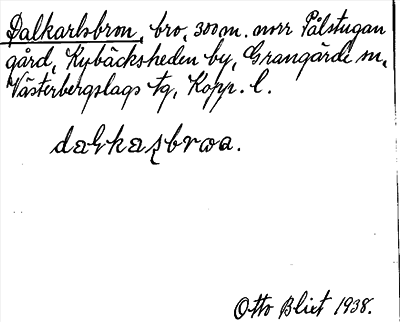 Dalkarlsbron, bro, 300 m. norr Pålstugan
gård, Kybäcksheden by, Grangärde sn,
Västerbergslags tg, Kopp. l.
Otto Blixt 1938.